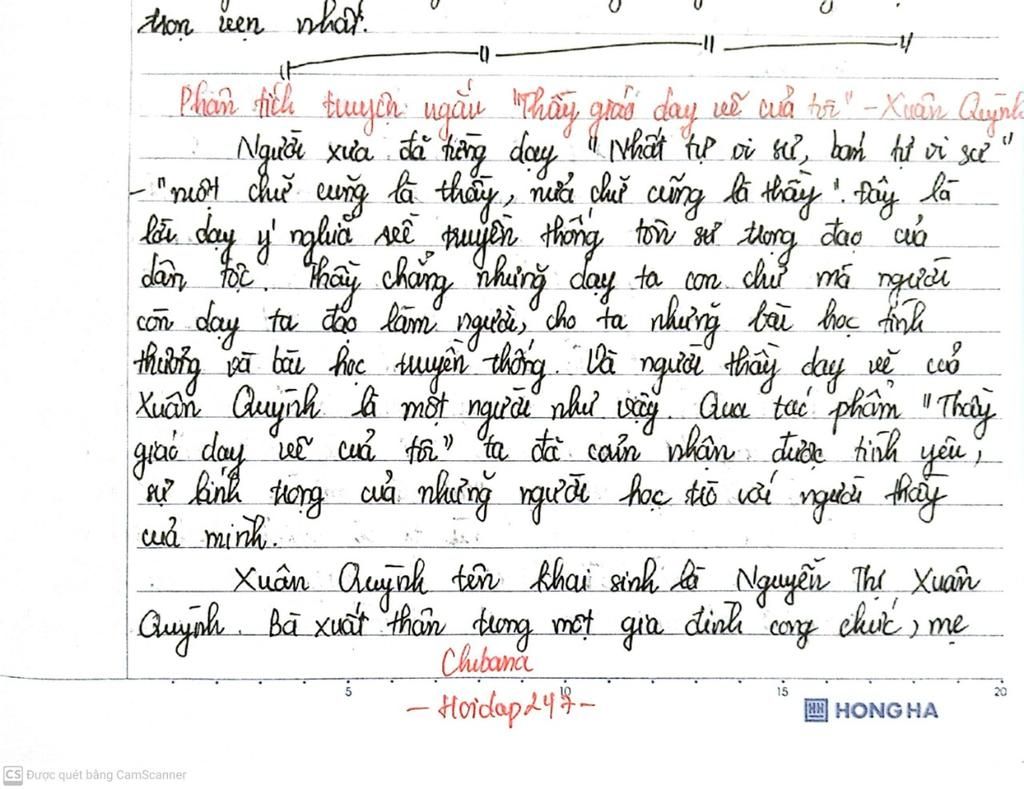 trọn vẹn nhất.
Phân tích truyện ngắn "Thầy giáo dạy vẽ của tôi" - Xuân Quỳnh
Người xưa đã từng dạy "Nhất tự vi sư, bán tự vi sư"
- "một chữ cũng là thầy, nửa chữ cũng là thầy". Đây là
lời dạy ý nghĩa về truyền thống tôn sư trọng đạo của
dân tộc. Thầy chẳng những dạy ta con chữ mà người
còn dạy ta đạo làm người, cho ta những bài học tình
thương và bài học truyền thống. Và người thầy dạy vẽ của
Xuân Quỳnh là một người như vậy. Qua tác phẩm "Thầy
giáo dạy vẽ của tôi" ta đã cảm nhận được tình yêu,
sự kính trọng của những người học trò với người thầy
của mình.
Xuân Quỳnh tên khai sinh là Nguyễn Thị Xuân
Quỳnh. Bà xuất thân trong một gia đình công chức, mẹ
Chibana
5 10 15 20
- Hoidap247 -
HONG HA
CS Được quét bằng CamScanner